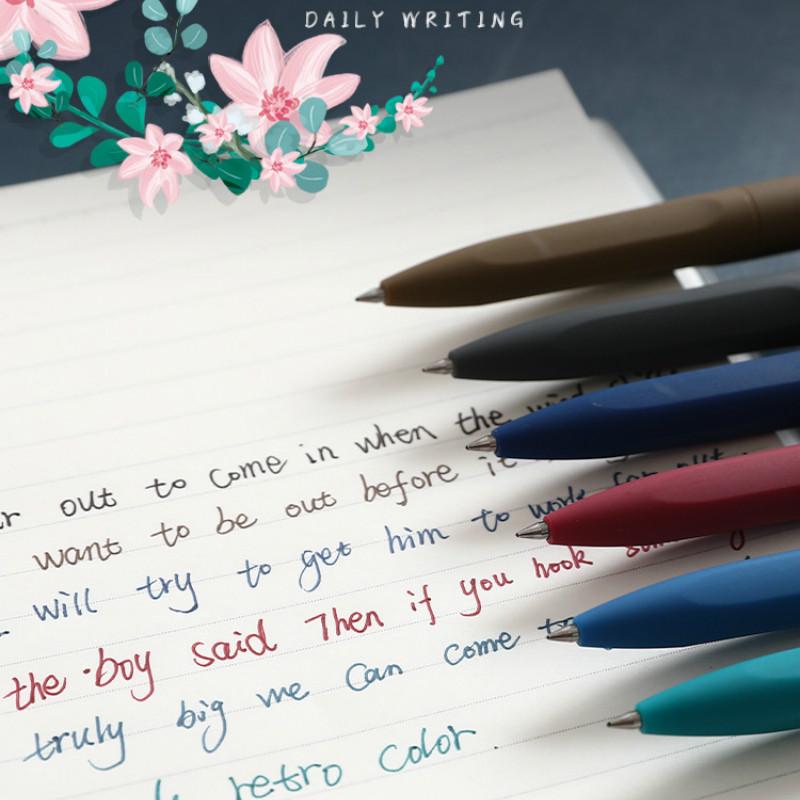 DAILY WRITING
out to come in when the wind
want to be out before it
will try to get him to work far out
the boy said Then if you hook
truly big we can come to
retro color.